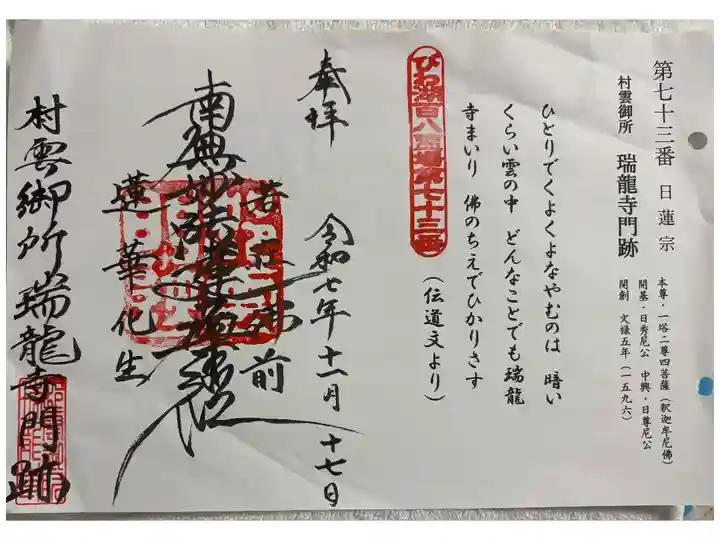 第七十三番 日蓮宗
村雲御所 瑞龍寺門跡
本尊・一塔二尊四菩薩(釈迦牟尼佛)
開基・日秀尼公 中興・日尊尼公
開創 文様五年(一五九六)
ひとりでくよくよなやむのは 暗い
くらい雲の中 どんなことでも瑞龍
寺まいり 佛のちえでひかりさす
(伝道文より)
びわ湖百八霊場第七十三番
奉拝 令和七年十一月十七日
若在佛前
南無妙法蓮華経
蓮華化生
村雲御所瑞龍寺門跡